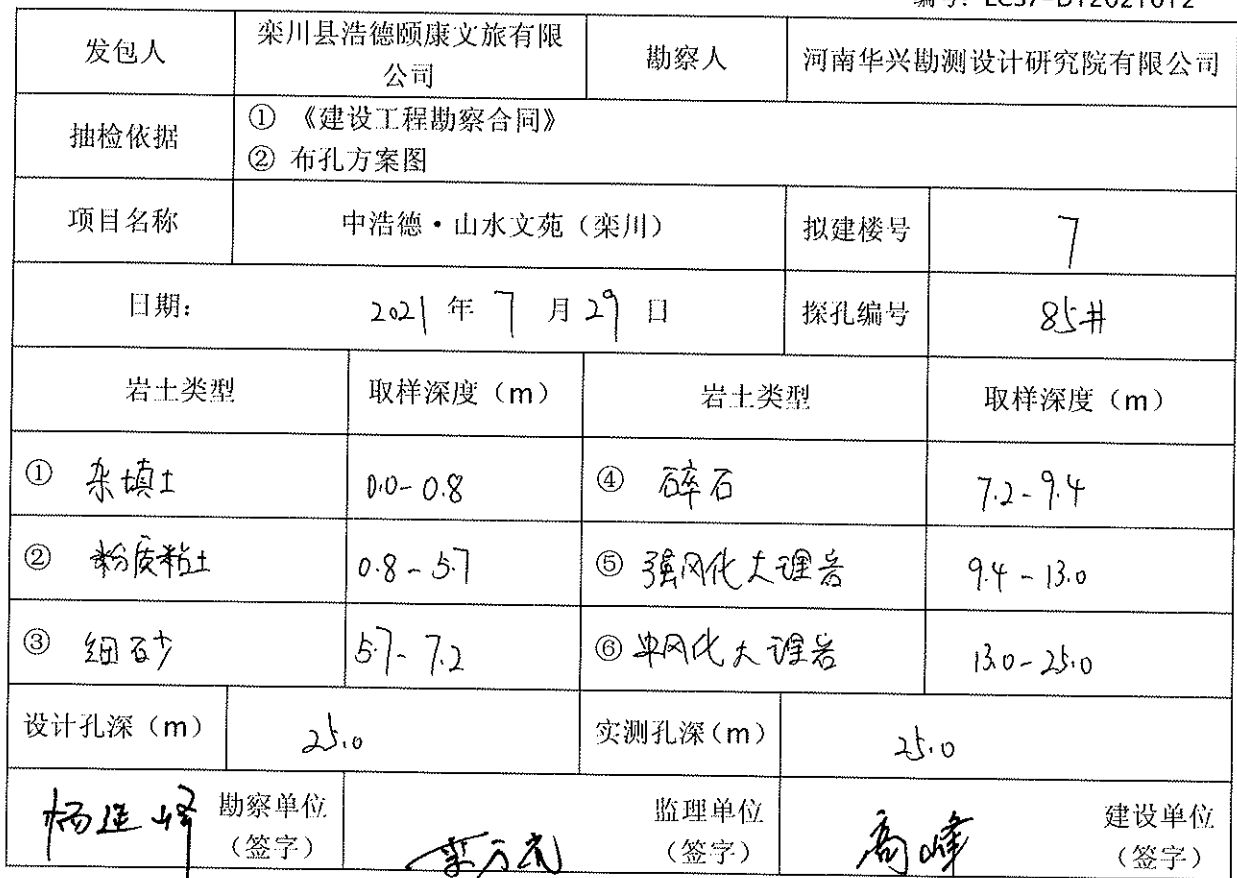 发包人 栾川县浩德颐康文旅有限公司 勘察人 河南华兴勘测设计研究院有限公司
抽检依据 ① 《建设工程勘察合同》
② 布孔方案图
项目名称 中浩德·山水文苑（栾川） 拟建楼号 7
日期： 2021 年 7 月 29 日 探孔编号 85#
岩土类型 取样深度（m） 岩土类型 取样深度（m）
① 杂填土 0.0-0.8 ④ 碎石 7.2-9.4
② 粉质粘土 0.8-5.7 ⑤ 强风化大理岩 9.4-13.0
③ 细砂 5.7-7.2 ⑥ 风化大理岩 13.0-25.0
设计孔深（m） 25.0 实测孔深（m） 25.0
勘察单位 监理单位 高峰 建设单位
（签字） （签字） （签字）